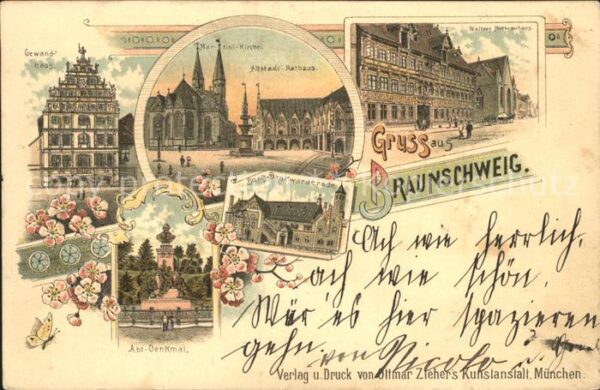 Gewand-
haus.
Mar-tini-Kirche.
Altstadt-Rathaus.
Gruss aus
BRAUNSCHWEIG.
Burg Dankwarderode
Abt-Denkmal.
Ach wie herrlich,
ach wie schön.
Wär' es hier spazieren
gehn. von Nicolo u.
Verlag u. Druck von Ottmar Zieher's Kunstanstalt, München.